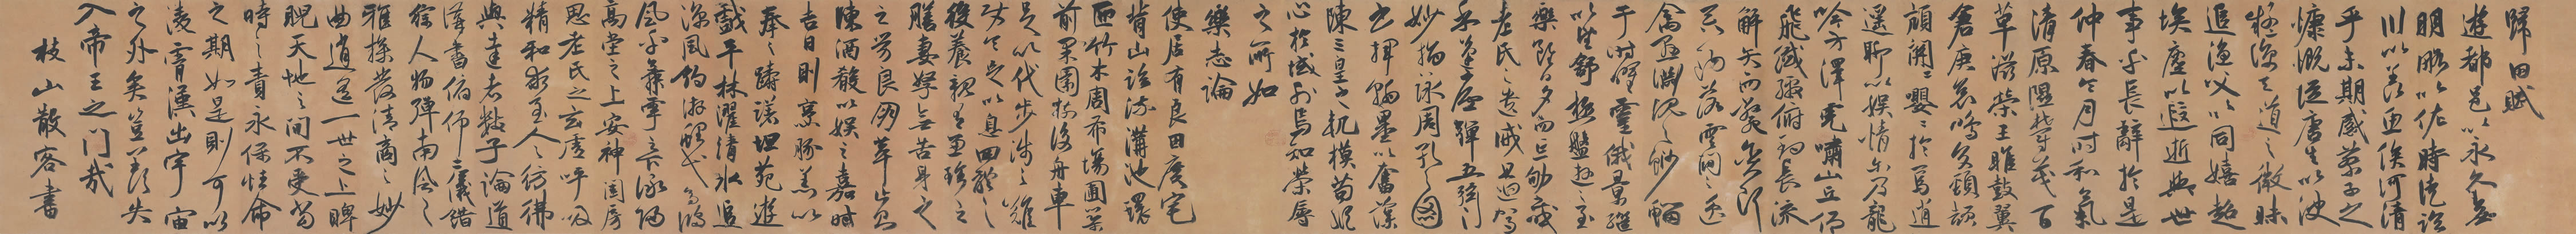 歸田賦
遊都邑以永久無
明略以佐時徒臨
川以羨魚俟河清
乎未期感蔡子之
慷慨從唐生以決
疑諒天道之微昧
追漁父以同嬉超
埃塵以遐逝與世
事乎長辭於是
仲春令月時和氣
清原隰鬱茂百
草滋榮王雎鼓翼
倉庚哀鳴交頸頡
頏關〻嚶〻於焉逍
遙聊以娛情爾乃龍
吟方澤虎嘯山丘仰
飛纖繳俯釣長流
觸矢而斃貪餌
吞鉤落雲間之逸
禽懸淵沉之魦鰡
于時曜靈俄景繼
以望舒極盤遊之至
樂雖日夕而忘劬感
老氏之遺誡且迴駕
乎蓬廬彈五弦之
妙指詠周孔之圖
書揮翰墨以奮藻
陳三皇之軌模苟縱
心於域外焉知榮辱
之所如
樂志論
使居有良田廣宅
背山臨流溝池環
匝竹木周布場圃築
前果園樹後舟車
足以代步涉之難
使令足以息四體之
役養親有兼珍之
膳妻孥無苦身之
勞良朋萃止則
陳酒餚以娛之嘉時
吉日則烹豚羔以
奉之躊躇畦苑遊
戲平林濯清水追
涼風釣游鯉弋高鴻
風乎舞雩詠歸
高堂之上安神閨房
思老氏之玄虛呼吸
精和求至人之彷彿
與達者數子論道
講書俯仰二儀錯
綜人物彈南風之
雅操發清商之妙
曲逍遙一世之上睥
睨天地之間不受當
時之責永保性命
之期如是則可以
凌霄漢出宇宙
之外矣豈羨夫
入帝王之門哉
枝山散客書